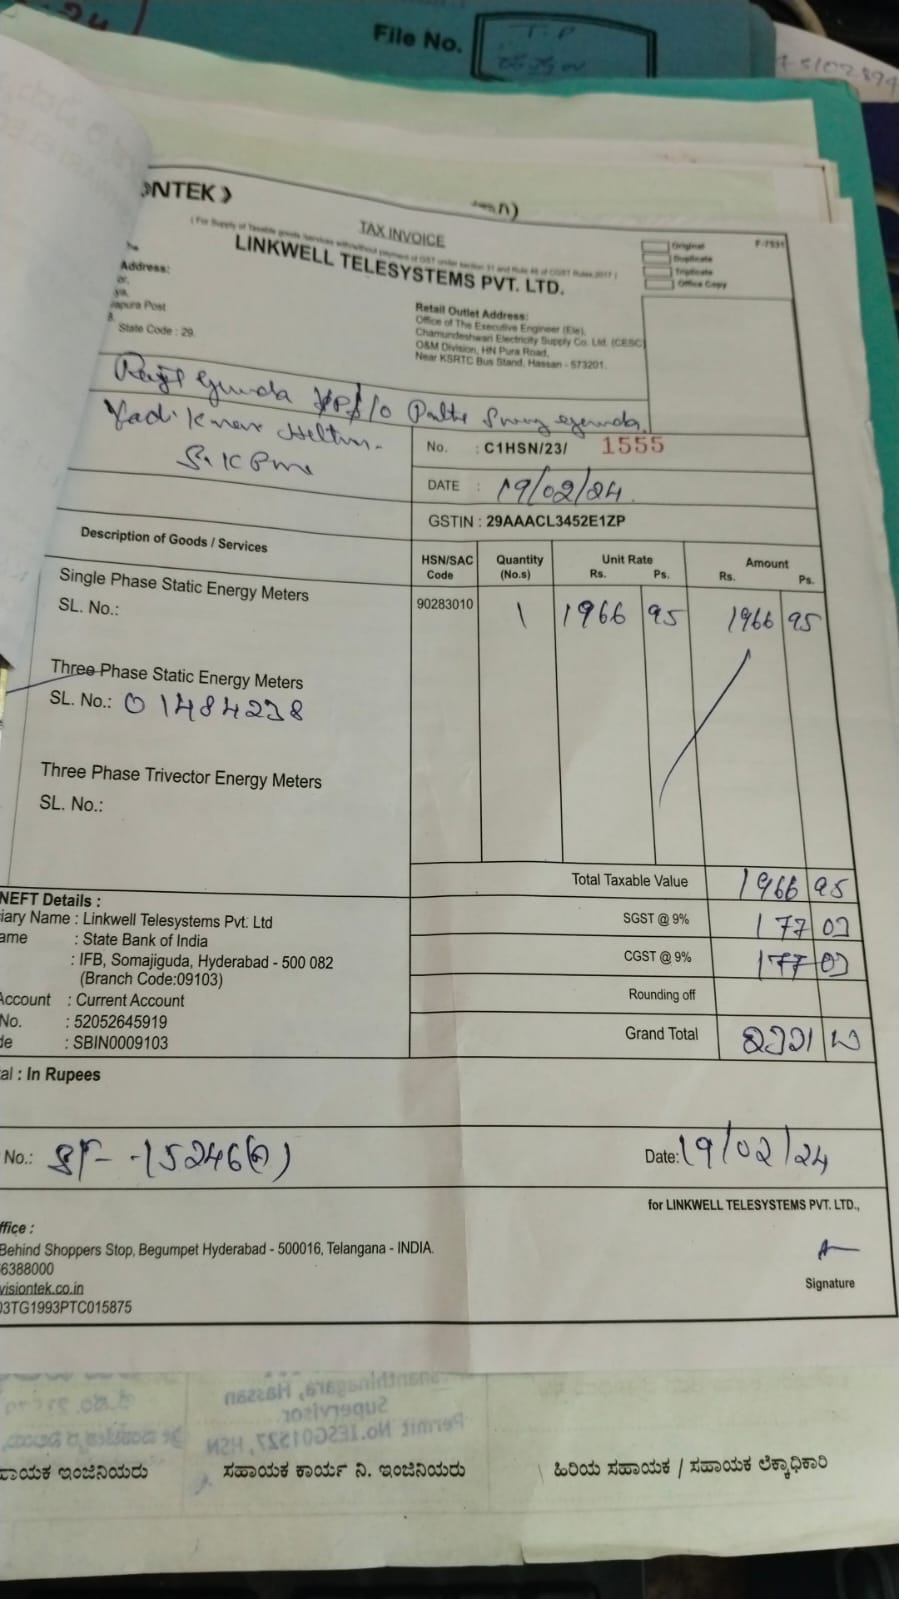 File No.
T.P
ONTEK
TAX INVOICE
( For Supply of Taxable goods /services with/without payment of GST under section 31 and Rule 46 of CGST Rules,2017 )
LINKWELL TELESYSTEMS PVT. LTD.
Original
Duplicate
Triplicate
Office Copy
F-7531
Address:
apura Post
State Code : 29.
Retail Outlet Address:
Office of The Executive Engineer (Ele),
Chamundeshwari Electricity Supply Co. Ltd. (CESC)
O&M Division, HN Pura Road,
Near KSRTC Bus Stand, Hassan - 573201.
No. : C1HSN/23/ 1555
DATE : 19/02/24
GSTIN : 29AAACL3452E1ZP
Description of Goods / Services
HSN/SAC Code
Quantity (No.s)
Unit Rate Rs. Ps.
Amount Rs. Ps.
Single Phase Static Energy Meters
SL. No.:
90283010 1 1966 95 1966 95
Three Phase Static Energy Meters
SL. No.: 01484238
Three Phase Trivector Energy Meters
SL. No.:
Total Taxable Value 1966 95
SGST @ 9% 177 03
CGST @ 9% 177 03
Rounding off
Grand Total 2321
NEFT Details :
iary Name : Linkwell Telesystems Pvt. Ltd
ame : State Bank of India
: IFB, Somajiguda, Hyderabad - 500 082
(Branch Code:09103)
Account : Current Account
No. : 52052645919
de : SBIN0009103
al : In Rupees
No.: 15246
Date: 19/02/24
for LINKWELL TELESYSTEMS PVT. LTD.,
Signature
ffice :
Behind Shoppers Stop, Begumpet Hyderabad - 500016, Telangana - INDIA.
6388000
visiontek.co.in
03TG1993PTC015875
Hassan
Supervisor
Permit No.IESG01527, HSN
ಾಯಕ ಇಂಜಿನಿಯರು
ಸಹಾಯಕ ಕಾರ್ಯ ನಿ. ಇಂಜಿನಿಯರು
ಹಿರಿಯ ಸಹಾಯಕ / ಸಹಾಯಕ ಲೆಕ್ಕಾಧಿಕಾರಿ